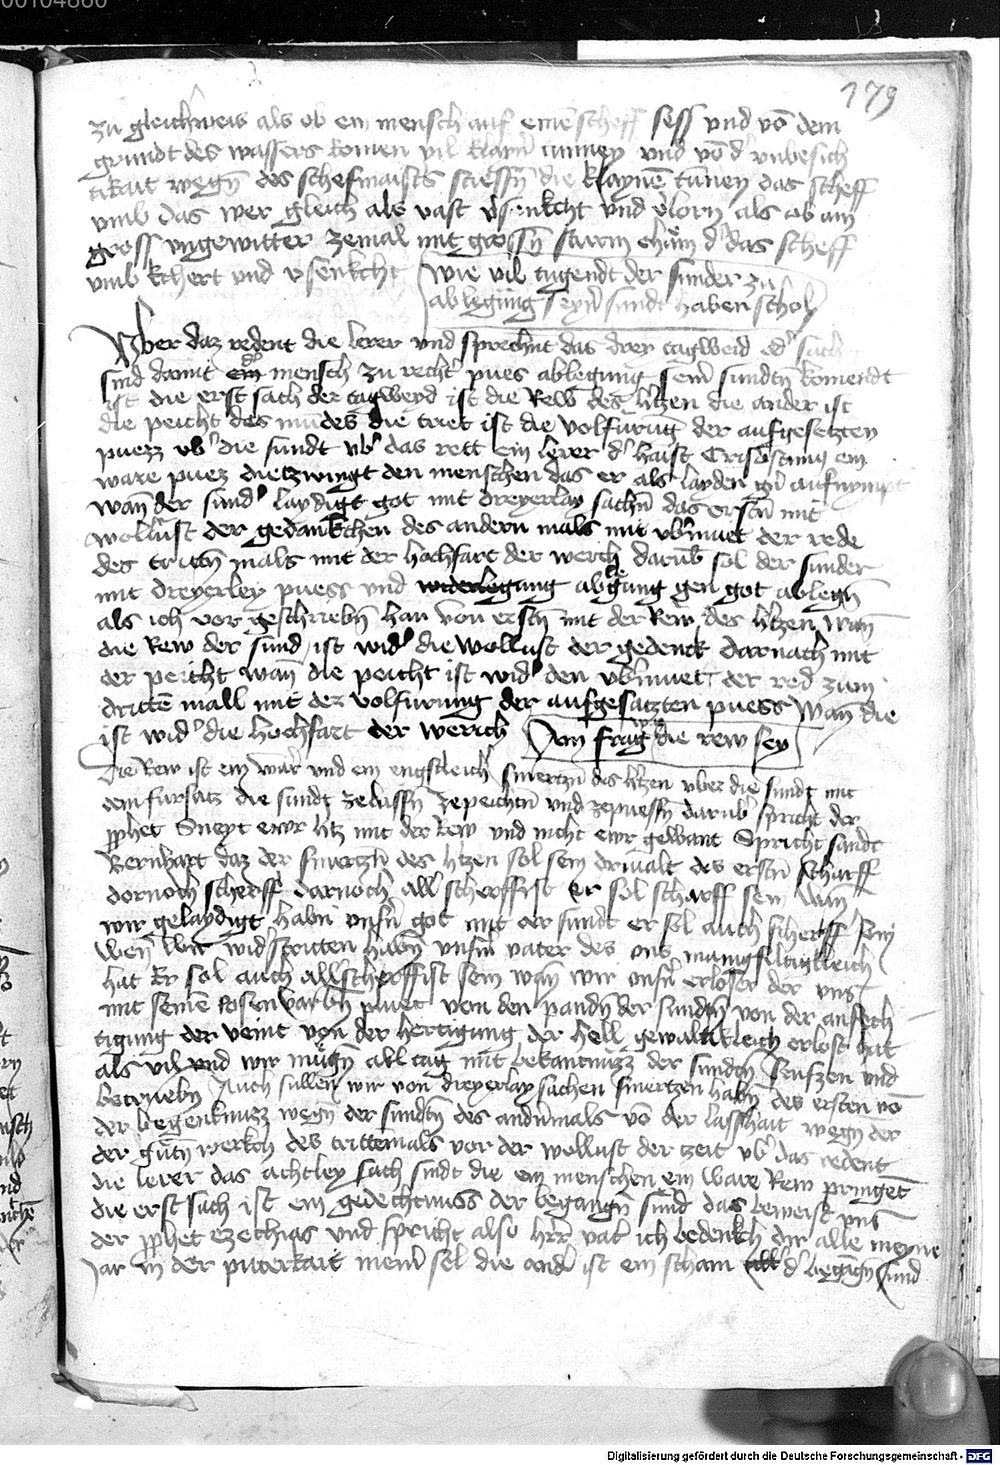 00104860
179
zu gleichweis als ob ein mensch auf eine scheff sess und vō dem
grundt des wassers komen vil klayn und vō dʼ unbesich
tikait wegn̄ des schefmaists die klaynē das scheff
umb das wer gleich als vast vʼsenkcht und vʼlorn als ob ain
gross ungewitter zemal mit grossn̄ sturm dʼ das scheff
umb kchert und vʼsenkcht
wie vil tugendt der sunder zu
ablegung seynʼ sundt haben schol
Uber daz redent die lerer und sprechnt das drey tagweid odʼ sach
sind damit dʼ mensch zu rechtʼ pues ablegung seinʼ sundtn̄ komendt
ist die erst sach der tagweyd ist die Rew des hʼtzen die ander ist
die peicht des mūdes die tret ist die volfurūg der aufgesetzten
puezz ubʼ die sundt ubʼ das rett ein lerer dʼ haist Crisostimus ein
ware puez dietzwingt den menschen das er als layden gʼn aufnympt
wan̄ der sundʼ laydigt got mit dreyerlay sachn̄ das erstn̄ mit
wollust der gedankchen des andern mals mit ubʼmuet der rede
des trittn̄ mals mit der hochfart der werch darūb sol der sunder
mit dreyerley puess und ablegung gen got ablegn̄
als ich vor geschriebn̄ han von erstn̄ mit der Rew des hʼtzen wan̄
die Rew der sund ist widʼ die wollust der gedenck darnach mit
der peicht wan̄ die peicht ist widʼ den ubʼmuet der red zum
drittē mall mit der volfurung der aufgesatzten puess wan̄ die
ist widʼ die hochfart der werich
Ain frag was die rew sey
Die Rew ist ein warʼ und ein engstleichʼ smertzn̄ des hʼtzen uber die sundt mit
dem fursatz die sundt zelassn̄ zepeichtn̄ und zepuessn̄ darubʼ spricht der
prophet Sneyt ewr hʼtz mit der Rew und nicht ewr gewant Spricht sandt
Bernhart daz der smertzn̄ des hʼtzen sol sein drivalt des erstn̄ scharff
dornoch scherff darnoch allʼ scherffist Er sol scharff sein wan̄
wir gelaydigt habn̄ unsʼn got mit der sundt er sol auch scherff sein
wen̄ wir widʼstritten habn̄ unsʼm vater der uns manigfeltigkleich
hat Er sol auch allʼscherffist sein wan̄ wir unsʼn erloser der uns
mit seinē rosenvarbn̄ pluet von den pandn̄ der sundtn̄ von der anfech
tigung der veint von der hertigung der hell gewaltikleich erlost hat
als vil und wir mugn̄ all tag mit bekantnuzz der sundtn̄ seufzen und
betrüebn̄ Auch sullen wir von dreyerlay sachen smertzen habn̄ des ersten vō
der begenknuzz wegn̄ der sundtn̄ des andn̄mals vō der lasshait wegn̄ der
der gutn̄ werkch des trittemals vor der wollust der zeit ubʼ das redent
die lerer das achtley sach sindt die ein menschen ein ware Rew pringet
die erst sach ist ein gedechtnuss der begangn̄ sund das beweist uns
der prophet ezechias und spricht also herr vatʼ ich bedenkch dir alle meyne
Jar in der puterkait meinʼ sel die andʼ ist ein scham dʼ begangn̄ sund
Digitalisierung gefördert durch die Deutsche Forschungsgemeinschaft - DFG